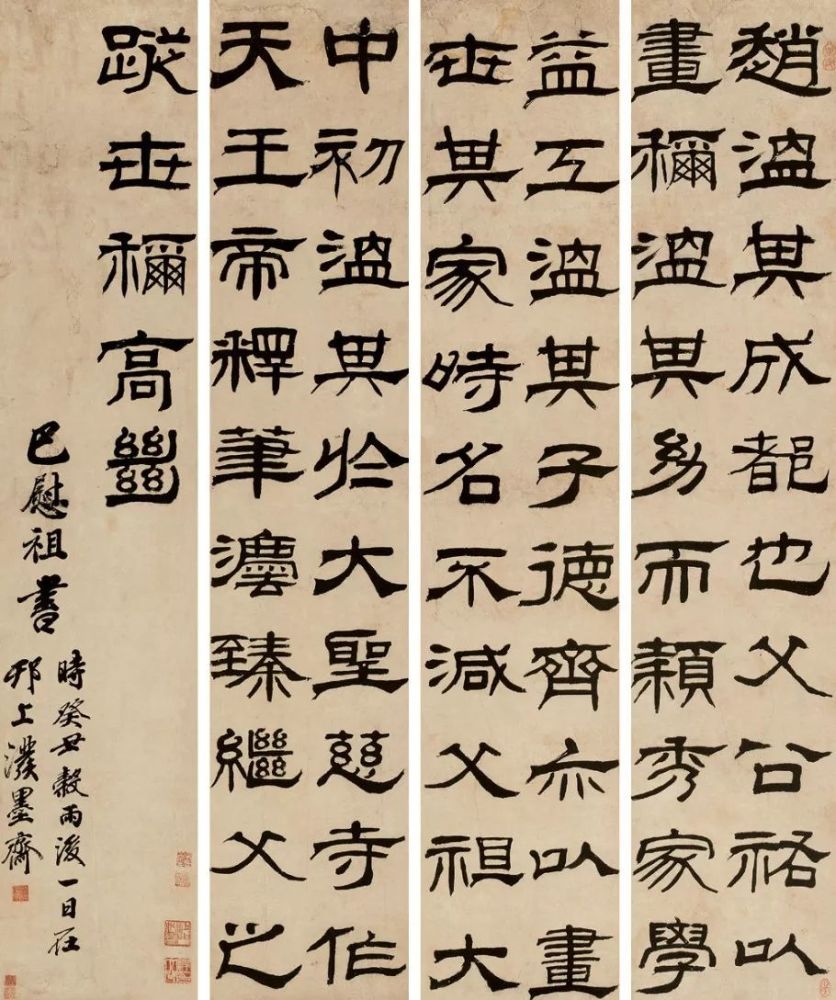 趙溫其成都也父公祐以
畫穪溫其幼而穎秀家學
益工溫其子德齊亦以畫
世其家時名不減父祖大
中初溫其於大聖慈寺作
天王帝釋筆灋臻繼父之
蹤世穪高𢇍
巴慰祖書
時癸丑穀雨後一日在
邗上潑墨齋